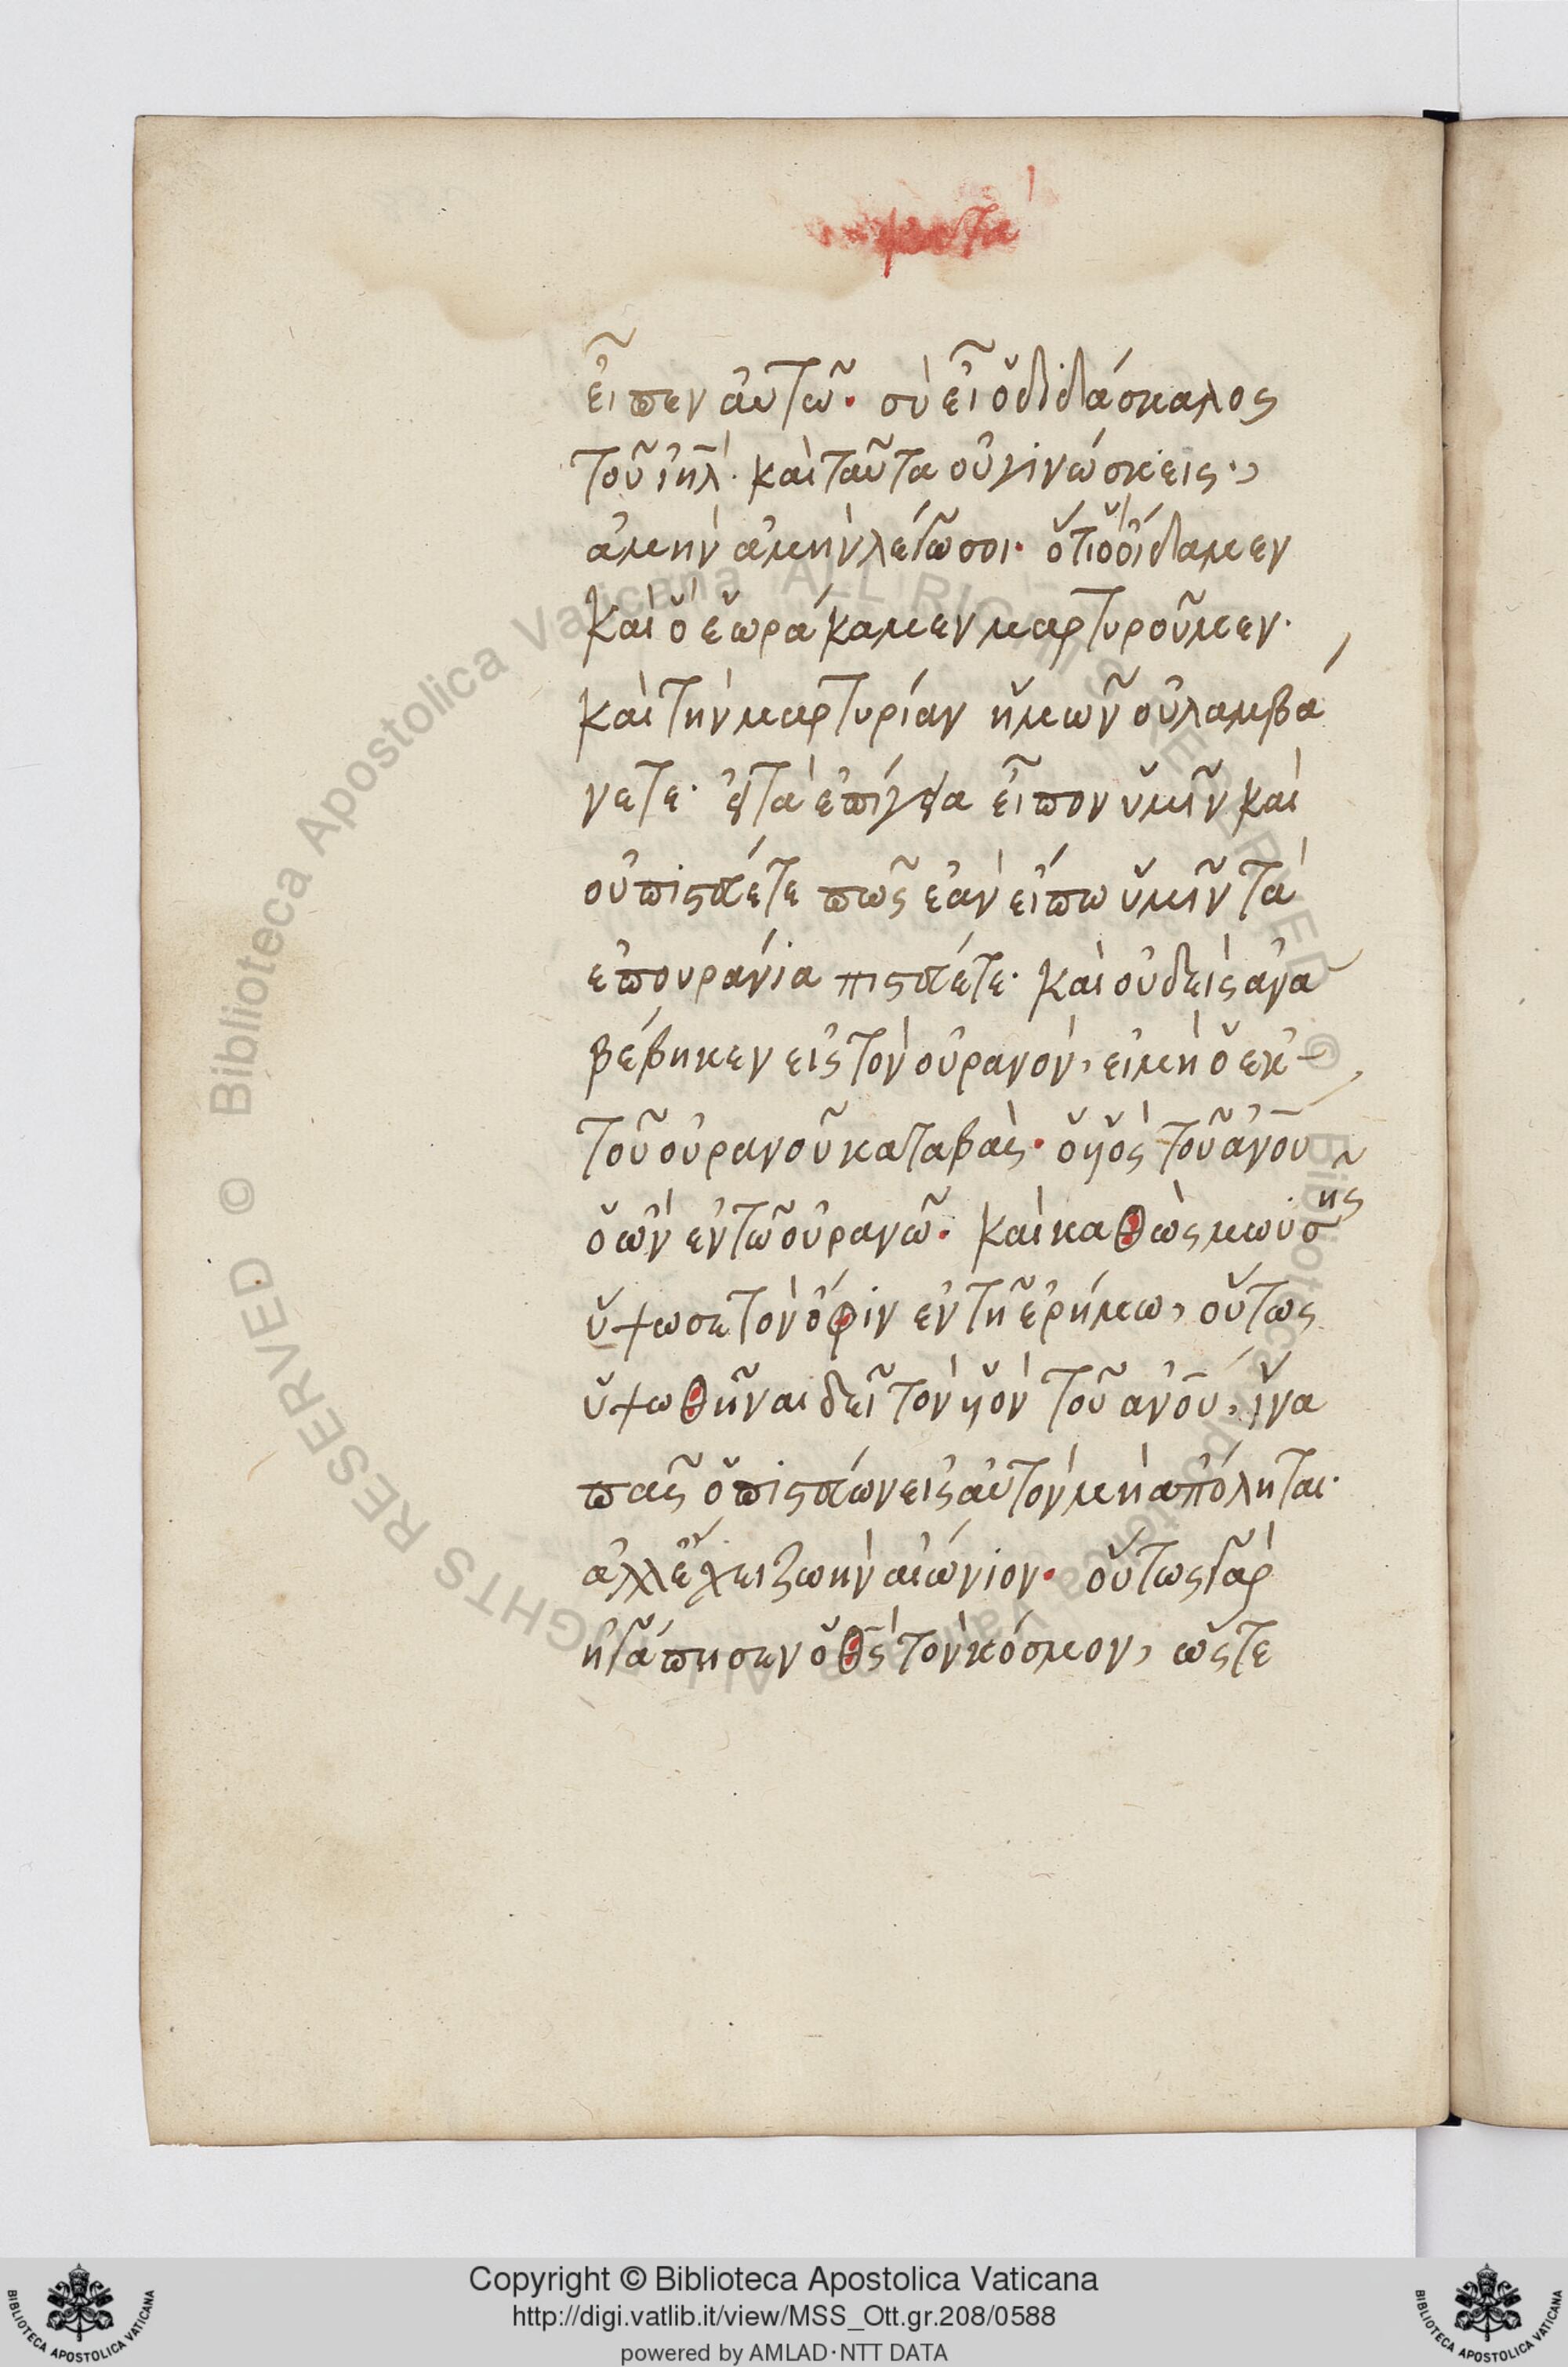 εἶπεν αὐτῶ· σὺ εἶ ὁ διδάσκαλος
τοῦ ἰηλ̅· καὶ ταῦτα οὐ γινώσκεις·,
ἀμὴν ἀμὴν λέγω σοι· ὅτι ὃ οἴδαμεν
καὶ ὃ ἑωράκαμεν μαρτυροῦμεν·
καὶ τὴν μαρτυρίαν ἡμῶν οὐ λαμβά
νετε· εἰ τὰ ἐπίγεια εἶπον ὑμῖν καὶ
οὐ πιστεύετε πῶς ἐὰν εἴπω ὑμῖν τὰ
ἐπουράνια πιστεύετε· καὶ οὐδεὶς ἀνα
βέβηκεν εἰς τὸν οὐρανόν, εἰ μὴ ὁ ἐκ-
τοῦ οὐρανοῦ καταβὰς· ὁ υἱὸς τοῦ ἀν̅ου
ὁ ὢν ἐν τῶ οὐρανῶ· καὶ καθὼς μωϋσῆς
ὕψωσε τὸν ὄφιν ἐν τῆ ἐρήμω, οὕτως
ὑψωθῆναι δεῖ τὸν υἱὸν τοῦ ἀν̅ου, ἵνα
πᾶς ὁ πιστεύων εἰς αὐτὸν μὴ ἀπόληται·
ἀλλ' ἔχει ζωὴν αἰώνιον· οὕτως γὰρ
ἠγάπησεν ὁ θ̅ς τὸν κόσμον, ὥστε
Copyright © Biblioteca Apostolica Vaticana
http://digi.vatlib.it/view/MSS_Ott.gr.208/0588
powered by AMLAD·NTT DATA